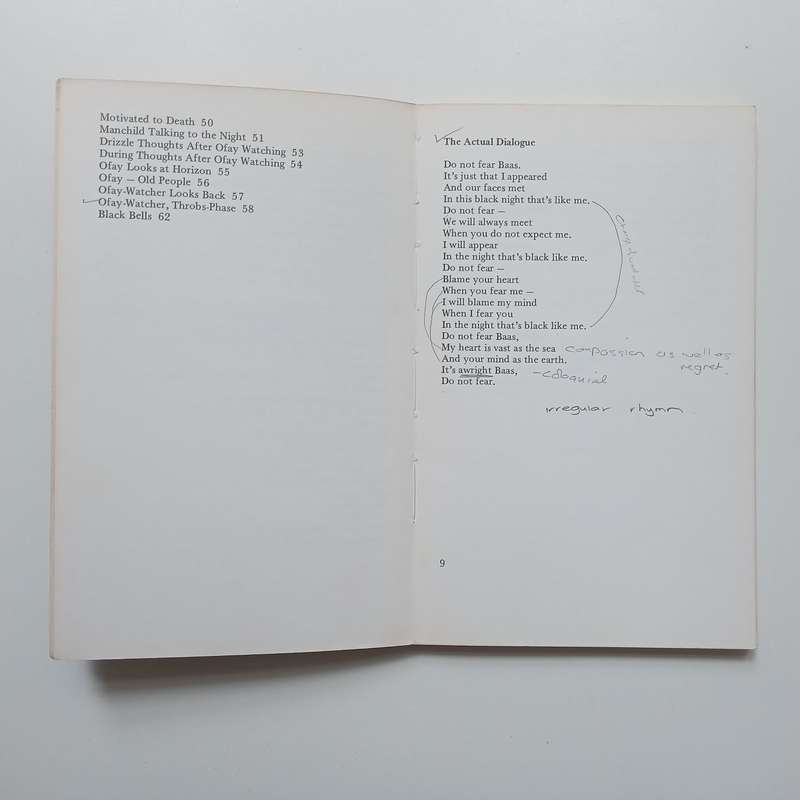 Motivated to Death 50
Manchild Talking to the Night 51
Drizzle Thoughts After Ofay Watching 53
During Thoughts After Ofay Watching 54
Ofay Looks at Horizon 55
Ofay — Old People 56
Ofay-Watcher Looks Back 57
Ofay-Watcher, Throbs-Phase 58
Black Bells 62
The Actual Dialogue
Do not fear Baas.
It's just that I appeared
And our faces met
In this black night that's like me.
Do not fear —
We will always meet
When you do not expect me.
I will appear
In the night that's black like me.
Do not fear —
Blame your heart
When you fear me —
I will blame my mind
When I fear you
In the night that's black like me.
Do not fear Baas,
My heart is vast as the sea compassion as well as
regret.
And your mind as the earth.
It's awright Baas, – coloquial
Do not fear.
irregular rhymn
9